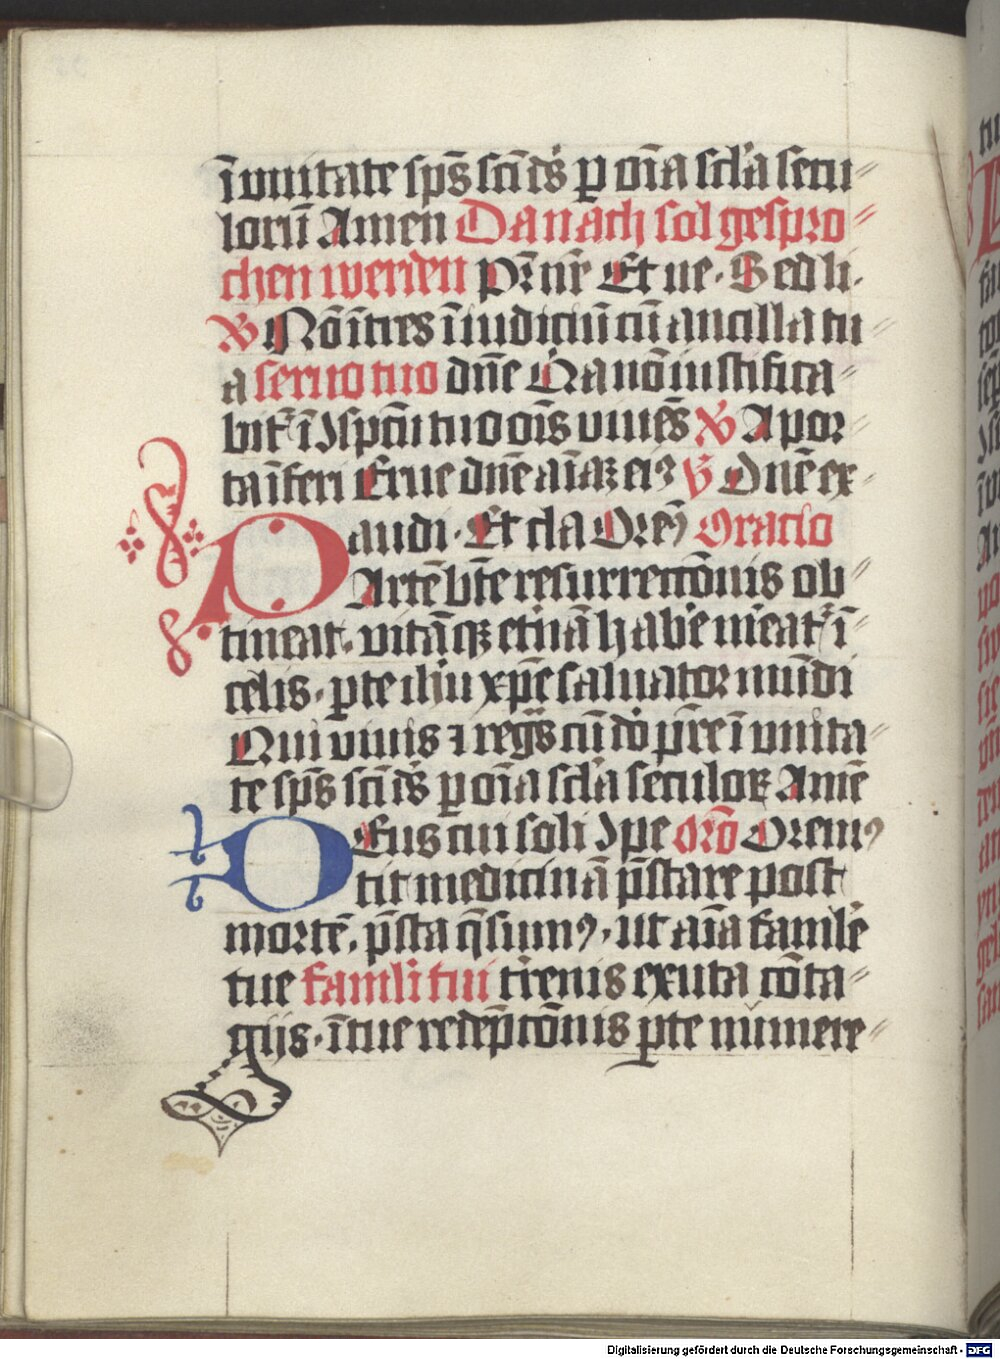 ī vnitate sp̄s sc̄i ds̄ ꝑ oīa scl̄a secu⸗
lorū Amen Danach sol gespro⸗
chen werden Pr̄ nr̄ Et ne · Sed li⸗
℣ Nō ītres ī iudiciū cū ancilla tu⸗
a seruo tuo dn̄e Q̄a nō iustifica⸗
bit᷑ ī ꝯspc̄tu tuo oīs viuēs ℣ A por⸗
ta īferi Erue dn̄e aīaꝫ eiꝰ ℣ Dn̄e ex⸗
audi · Et cla Oremꝰ Oratio
PArtē bt̄e resurrectōnis ob⸗
tineat · vitāqꝫ et̄nā habē m̄eat᷑ ī
celis · ꝑ te ih̄u xp̄e saluator mūdi
Qui viuis ⁊ regn̄s cū dō pr̄e ī vnita⸗
te sp̄s sc̄i ds̄ ꝑ oīa scl̄a seculoꝝ Amē
DEus cui soli ꝯpe orō Oremꝰ
tit medicinā p̄stare post
mortē · p̄sta q̄sumꝰ · ut aīa famlē
tue famli tui t̄renis exuta cōta⸗
gijs · ī tue redēptōnis ꝑte nūmere⸗
Digitalisierung gefördert durch die Deutsche Forschungsgemeinschaft - DFG